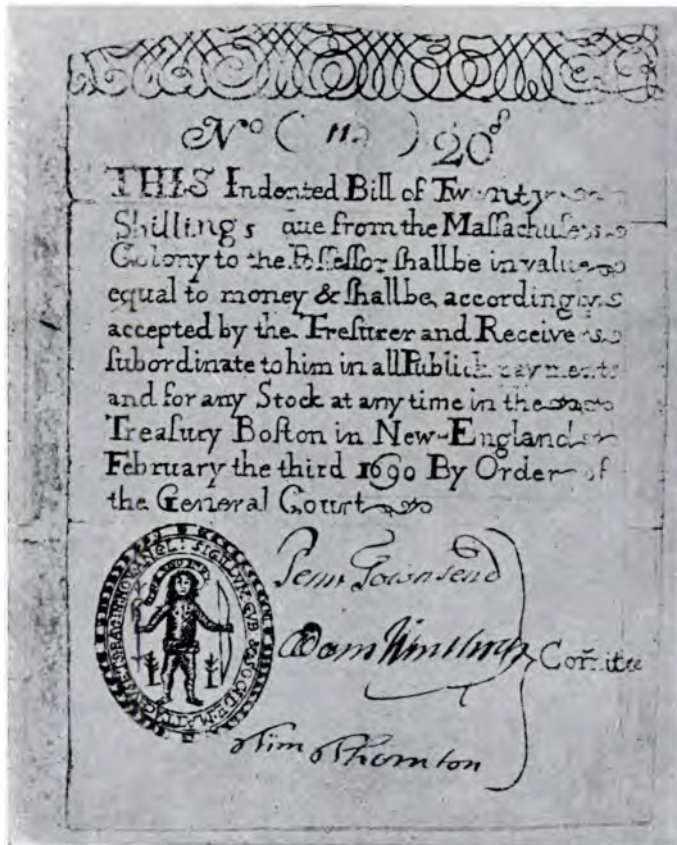 Nº ( 11 ) 20ˢ
THIS Indented Bill of Twenty
Shillings due from the Maſſachuſets
Colony to the Poſſeſſor ſhallbe in value
equal to money & ſhallbe accordingly
accepted by the Treſurer and Receivers
ſubordinate to him in all Publick payments
and for any Stock at any time in the
Treaſury Boſton in New-England
February the third 1690 By Order of
the General Court
Penn Townsend
Adam Winthrop
Tim Thornton
Com̃itee
SIGILLUM GUB & SOC DE MATTACHUSETS BAY IN NOV ANGL